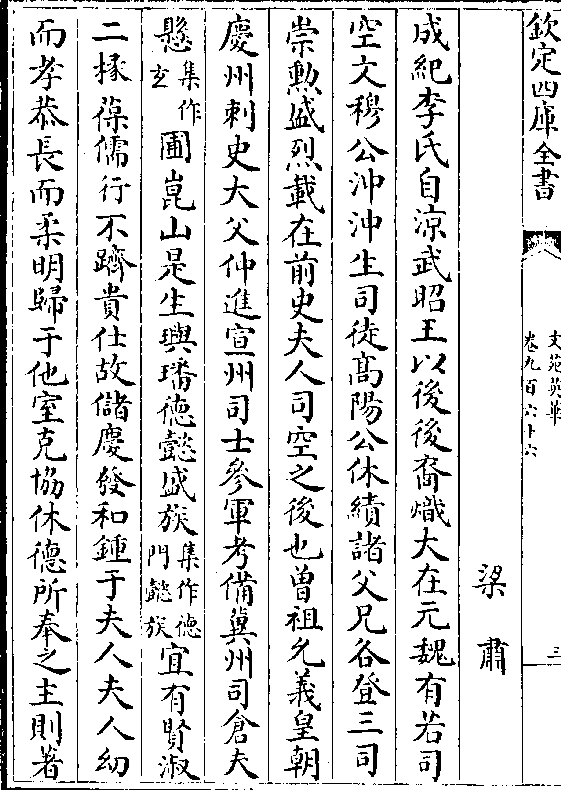 欽定四庫全書
文苑英華
卷九百六十六
三
梁肅
成紀李氏自涼武昭王以後後裔熾大在元魏有若司
空文穆公沖沖生司徒髙陽公休纉諸父兄各登三司
崇勲盛烈載在前史夫人司空之後也曽祖允義皇朝
慶州刺史大父仲進宣州司士參軍考備冀州司倉夫
懸集作玄圃崑山是生璵璠德懿盛族集作德門懿族宜有賢淑
二掾葆儒行不躋貴仕故儲慶發和鍾于夫人夫人幼
而孝恭長而柔明歸于他室克協休德所奉之主則著